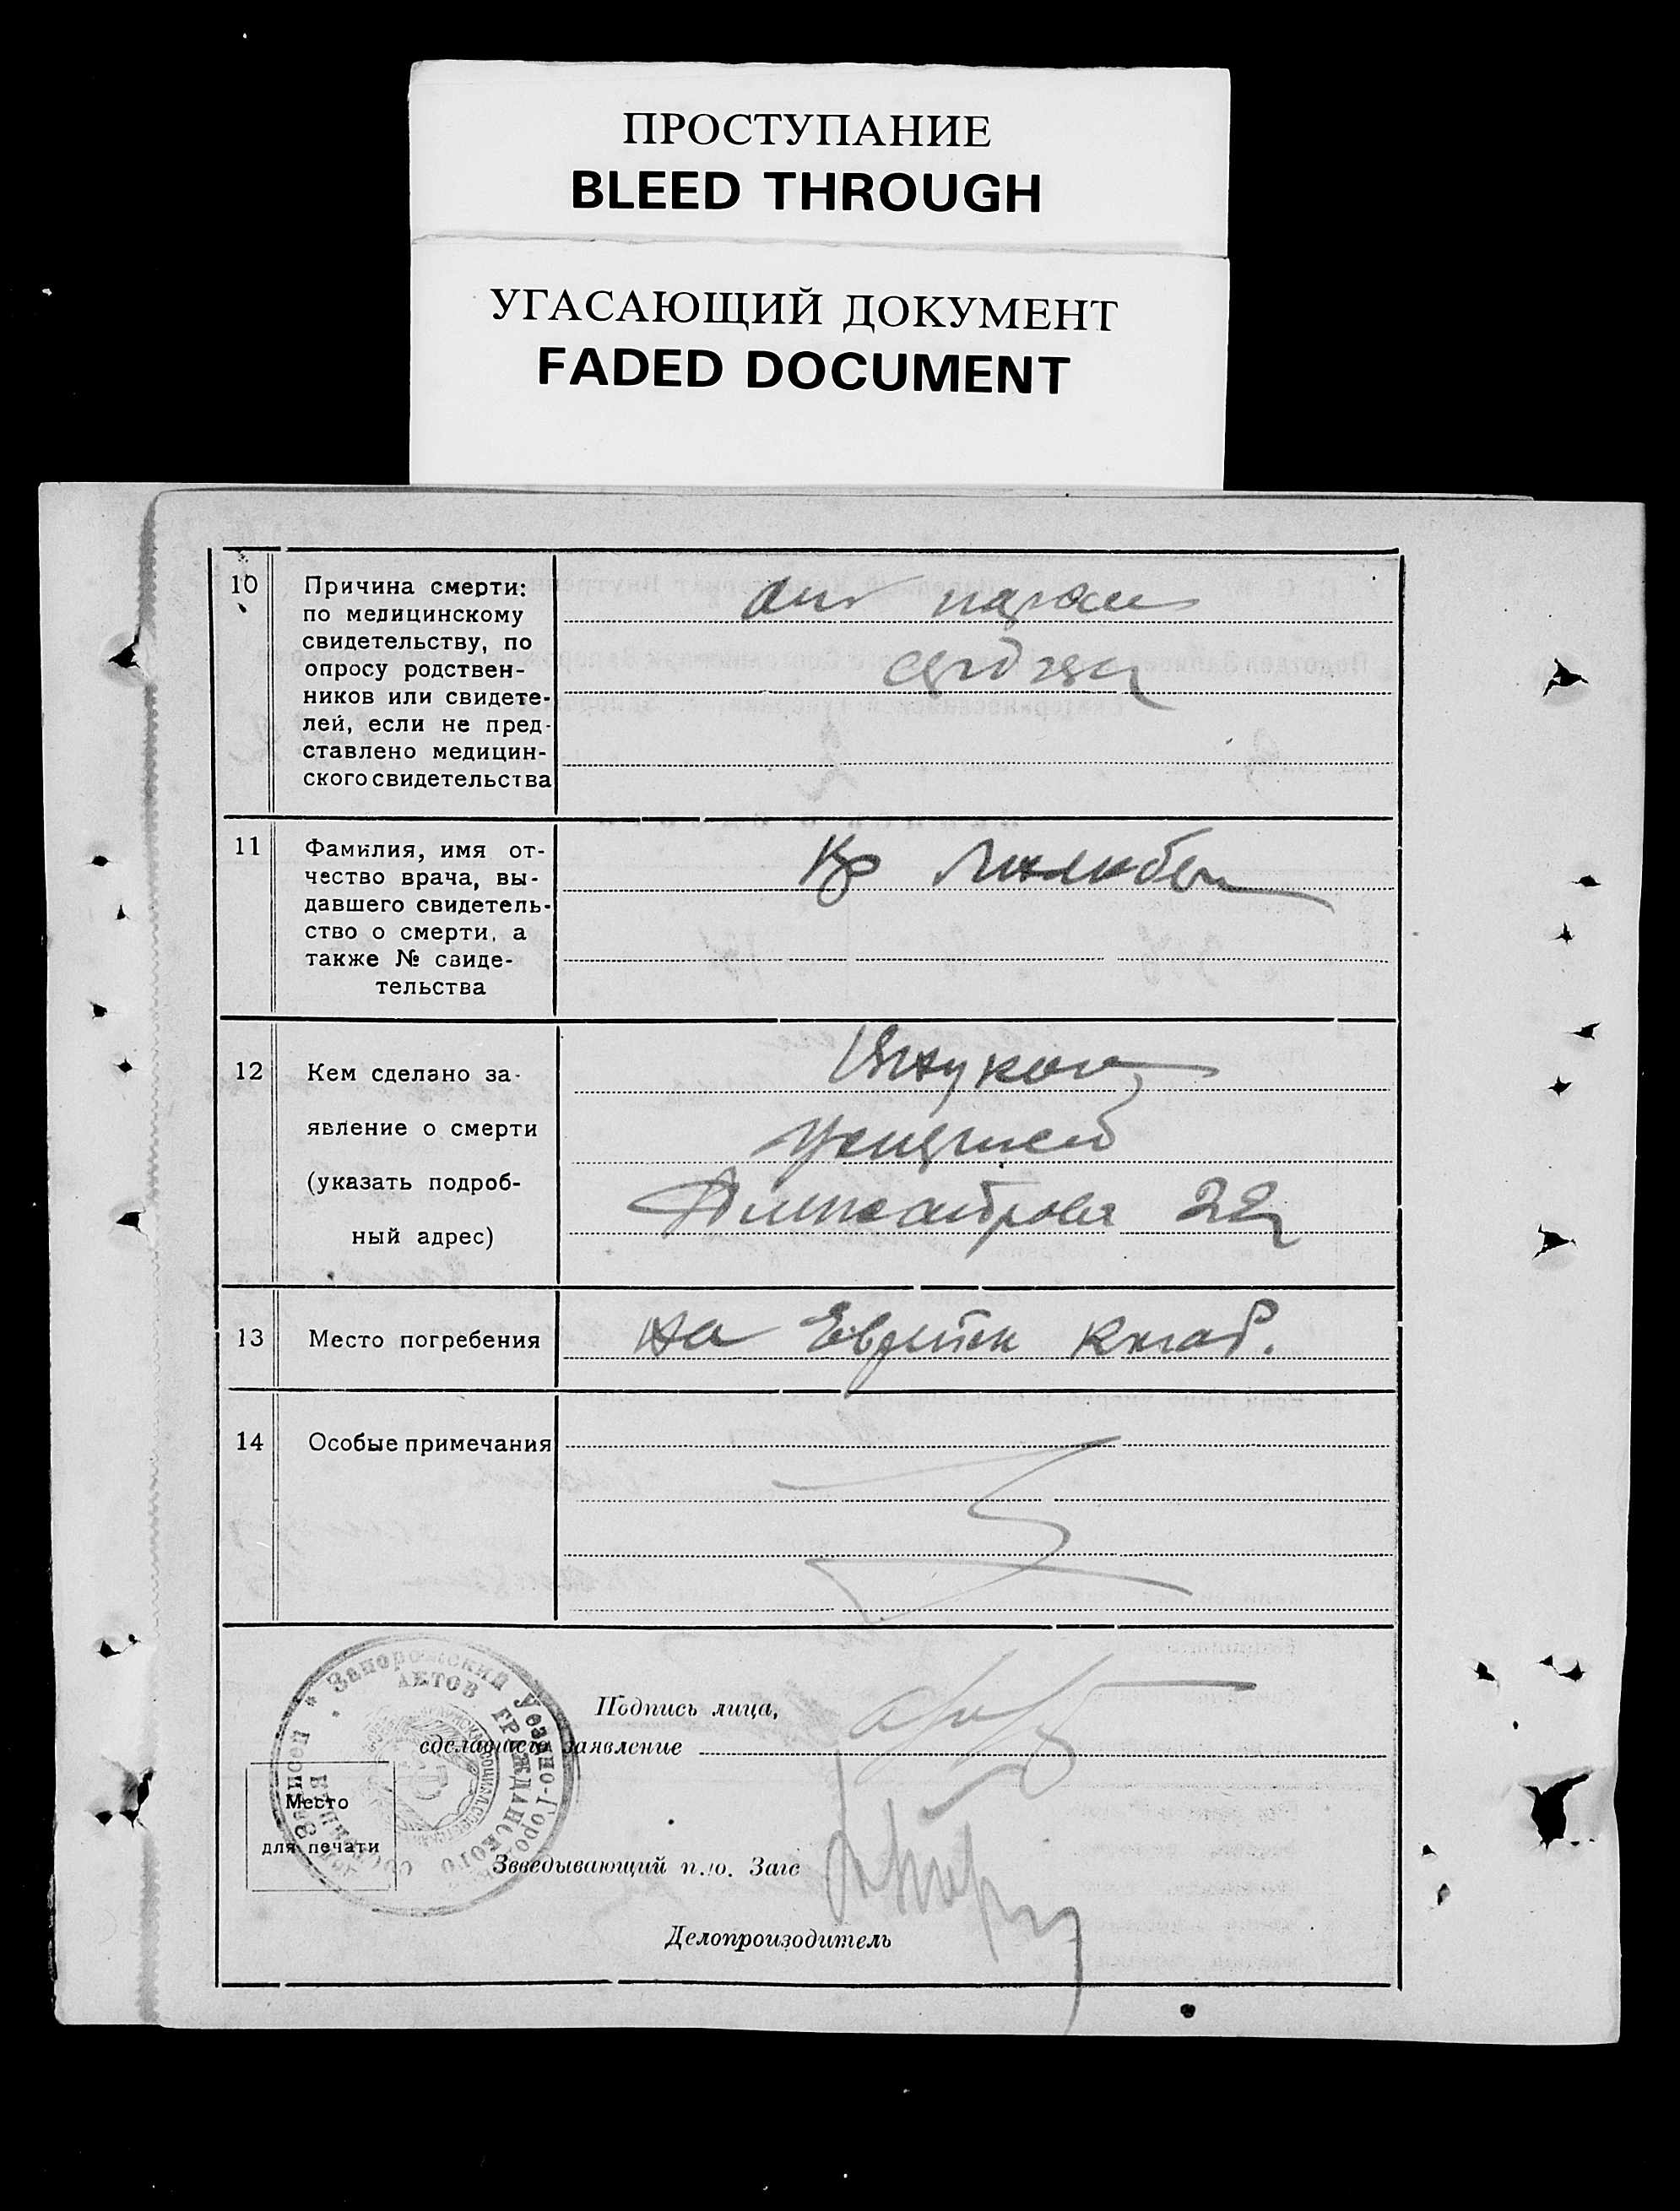 ПРОСТУПАНИЕ
BLEED THROUGH
УГАСАЮЩИЙ ДОКУМЕНТ
FADED DOCUMENT
10
Причина смерти:
по медицинскому
свидетельству, по
опросу родствен-
ников или свидете-
лей, если не пред-
ставлено медицин-
ского свидетельства
от парал
сердца
11
Фамилия, имя от-
чество врача, вы-
давшего свидетель-
ство о смерти, а
также № свиде-
тельства
12
Кем сделано за-
явление о смерти
(указать подроб-
ный адрес)
Внуком
умершей
22
13
Место погребения
на Еврейск клад.
14
Особые примечания
Запорожский Уездно-Горо
АКТОВ ГРАЖДАНСКОГО
Подпись лица,
сделавшего заявление
Место
для печати
Звведывающий п./о. Загс
Делопроизводитель